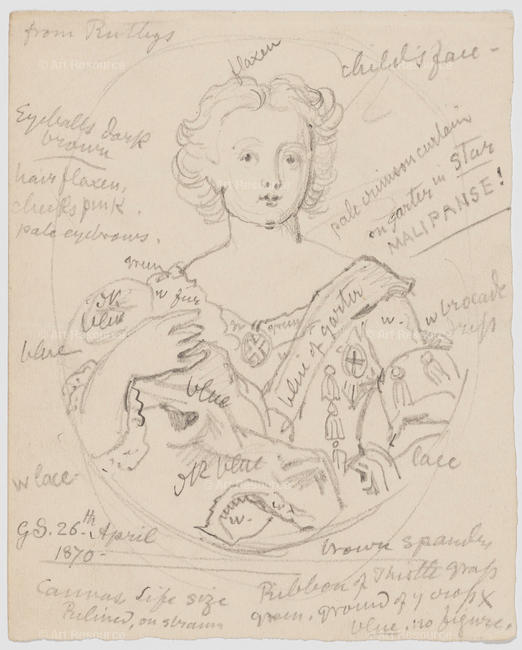 from Rutleys
flaxen
child's face -
Eyeballs dark
brown
hair flaxen,
cheeks pink.
pale eyebrows.
pale crimson curtain
on garter in star
MALIPANSE!
green
w fur
dk
blue
green
blue of garter
w.
w brocade
blue
blue
dk blue
lace
w lace
w.
GS. 26th April
1870-
brown spandr
Canvas life size
Relined, on strainr
Ribbon of Thistle grass
green. ground of y cross X
blue. no figure.
© Art Resource
© Art Resource
© Art Resource
© Art Resource
© Art Resource